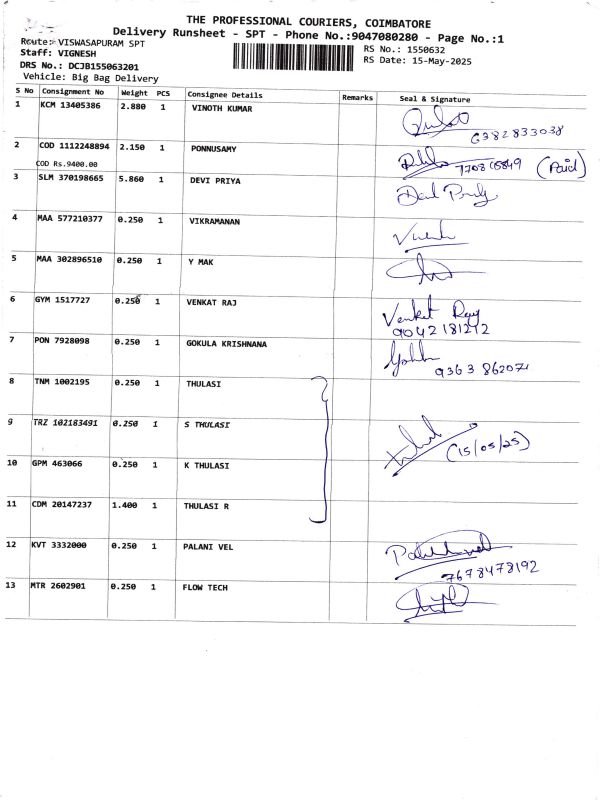 THE PROFESSIONAL COURIERS, COIMBATORE
Delivery Runsheet - SPT - Phone No.:9047080280 - Page No.:1
Route: VISWASAPURAM SPT
Staff: VIGNESH
DRS No.: DCJB155063201
Vehicle: Big Bag Delivery
RS No.: 1550632
RS Date: 15-May-2025
S No Consignment No Weight PCS Consignee Details Remarks Seal & Signature
1 KCM 13405386 2.880 1 VINOTH KUMAR
6382833038
2 COD 1112248894 2.150 1 PONNUSAMY
COD Rs.9400.00 (Paid)
3 SLM 370198665 5.860 1 DEVI PRIYA
4 MAA 577210377 0.250 1 VIKRAMANAN
5 MAA 302896510 0.250 1 Y MAK
6 GYM 1517727 0.250 1 VENKAT RAJ Venket Ray
9042181212
7 PON 7928098 0.250 1 GOKULA KRISHNANA
9363862071
8 TNM 1002195 0.250 1 THULASI
9 TRZ 102183491 0.250 1 S THULASI
(15/05/25)
10 GPM 463066 0.250 1 K THULASI
11 CDM 20147237 1.400 1 THULASI R
12 KVT 3332000 0.250 1 PALANI VEL
7678478192
13 MTR 2602901 0.250 1 FLOW TECH